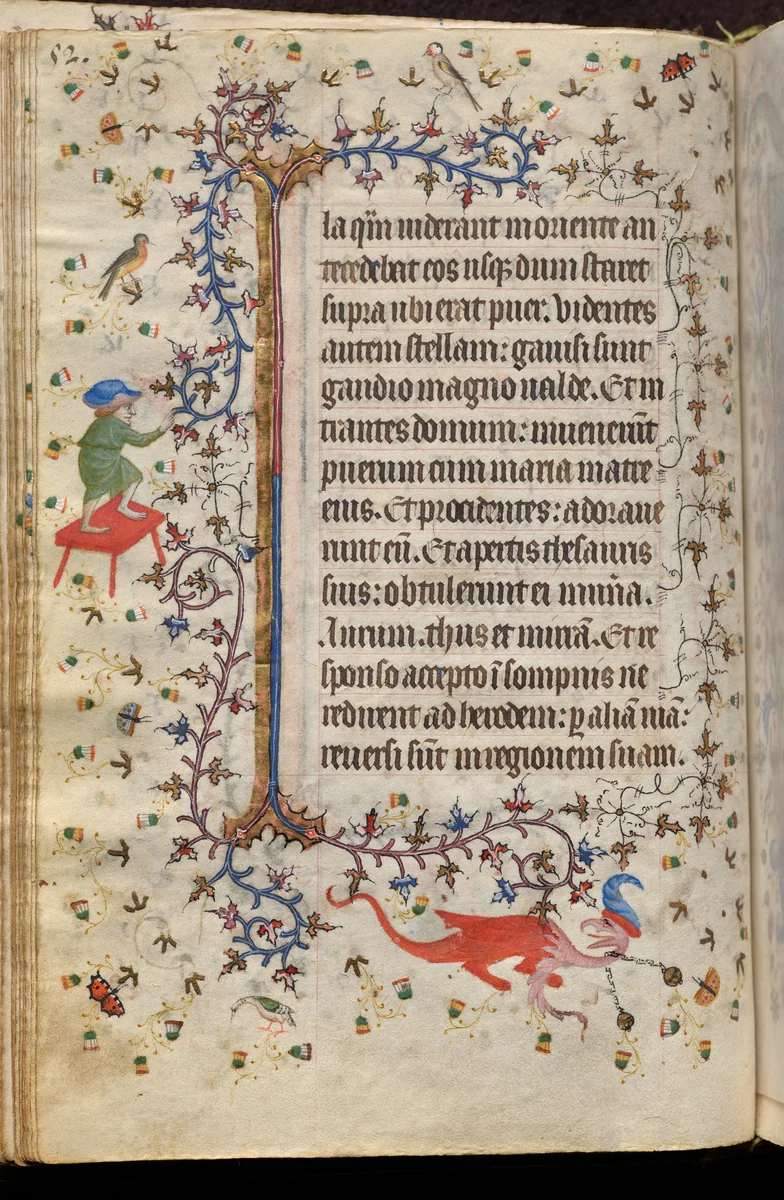 52.
la qͫn uiderant in oriente an
tecedebat eos usqꝫ dum staret
supra ubi erat puer. Videntes
autem stellam: gauisi sunt
gaudio magno ualde. Et in
trantes domum: inuenerūt
puerum cum maria matre
eius. Et procidentes: adoraue
runt eū. Et apertis thesauris
suis: obtulerunt ei mun̄a.
Aurum. thus et mirrā. Et re
sponso accepto ī sompnis ne
redirent ad herodem: ꝑ aliā uiā:
reuersi sūt in regionem suam.